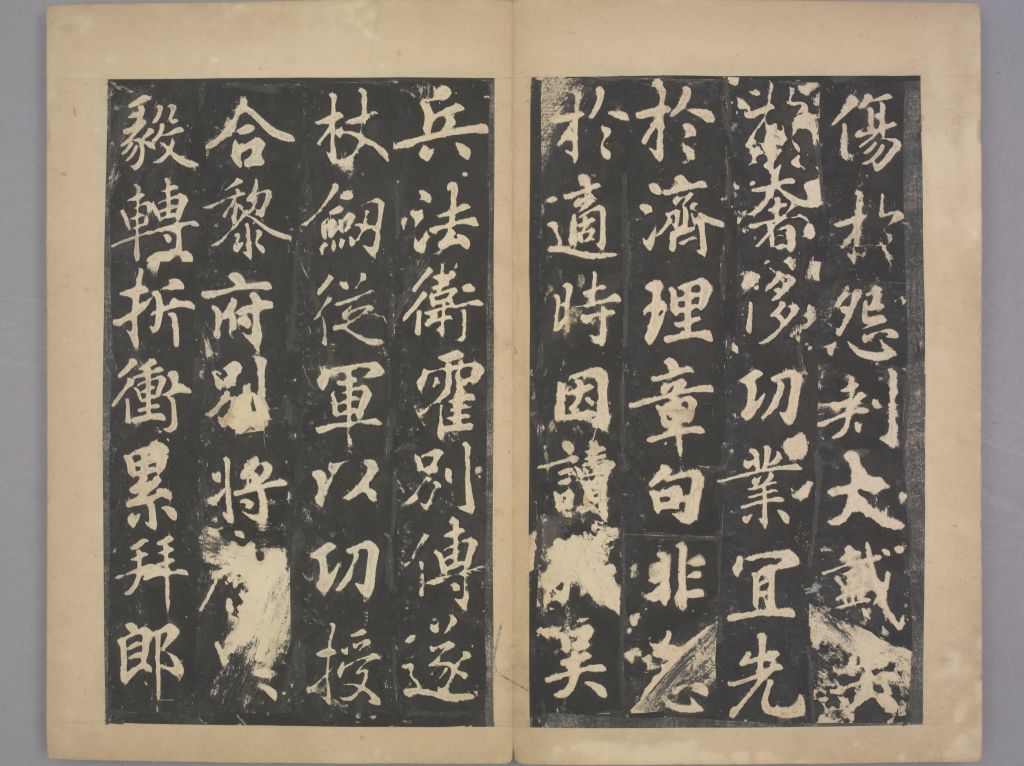 傷於怨刺大戴
於奢侈功業宜先
於濟理章句非
於適時因讀吴
兵法衛霍別傳遂
杖劒從軍以功授
合黎府別將
毅轉折衝累拜郎